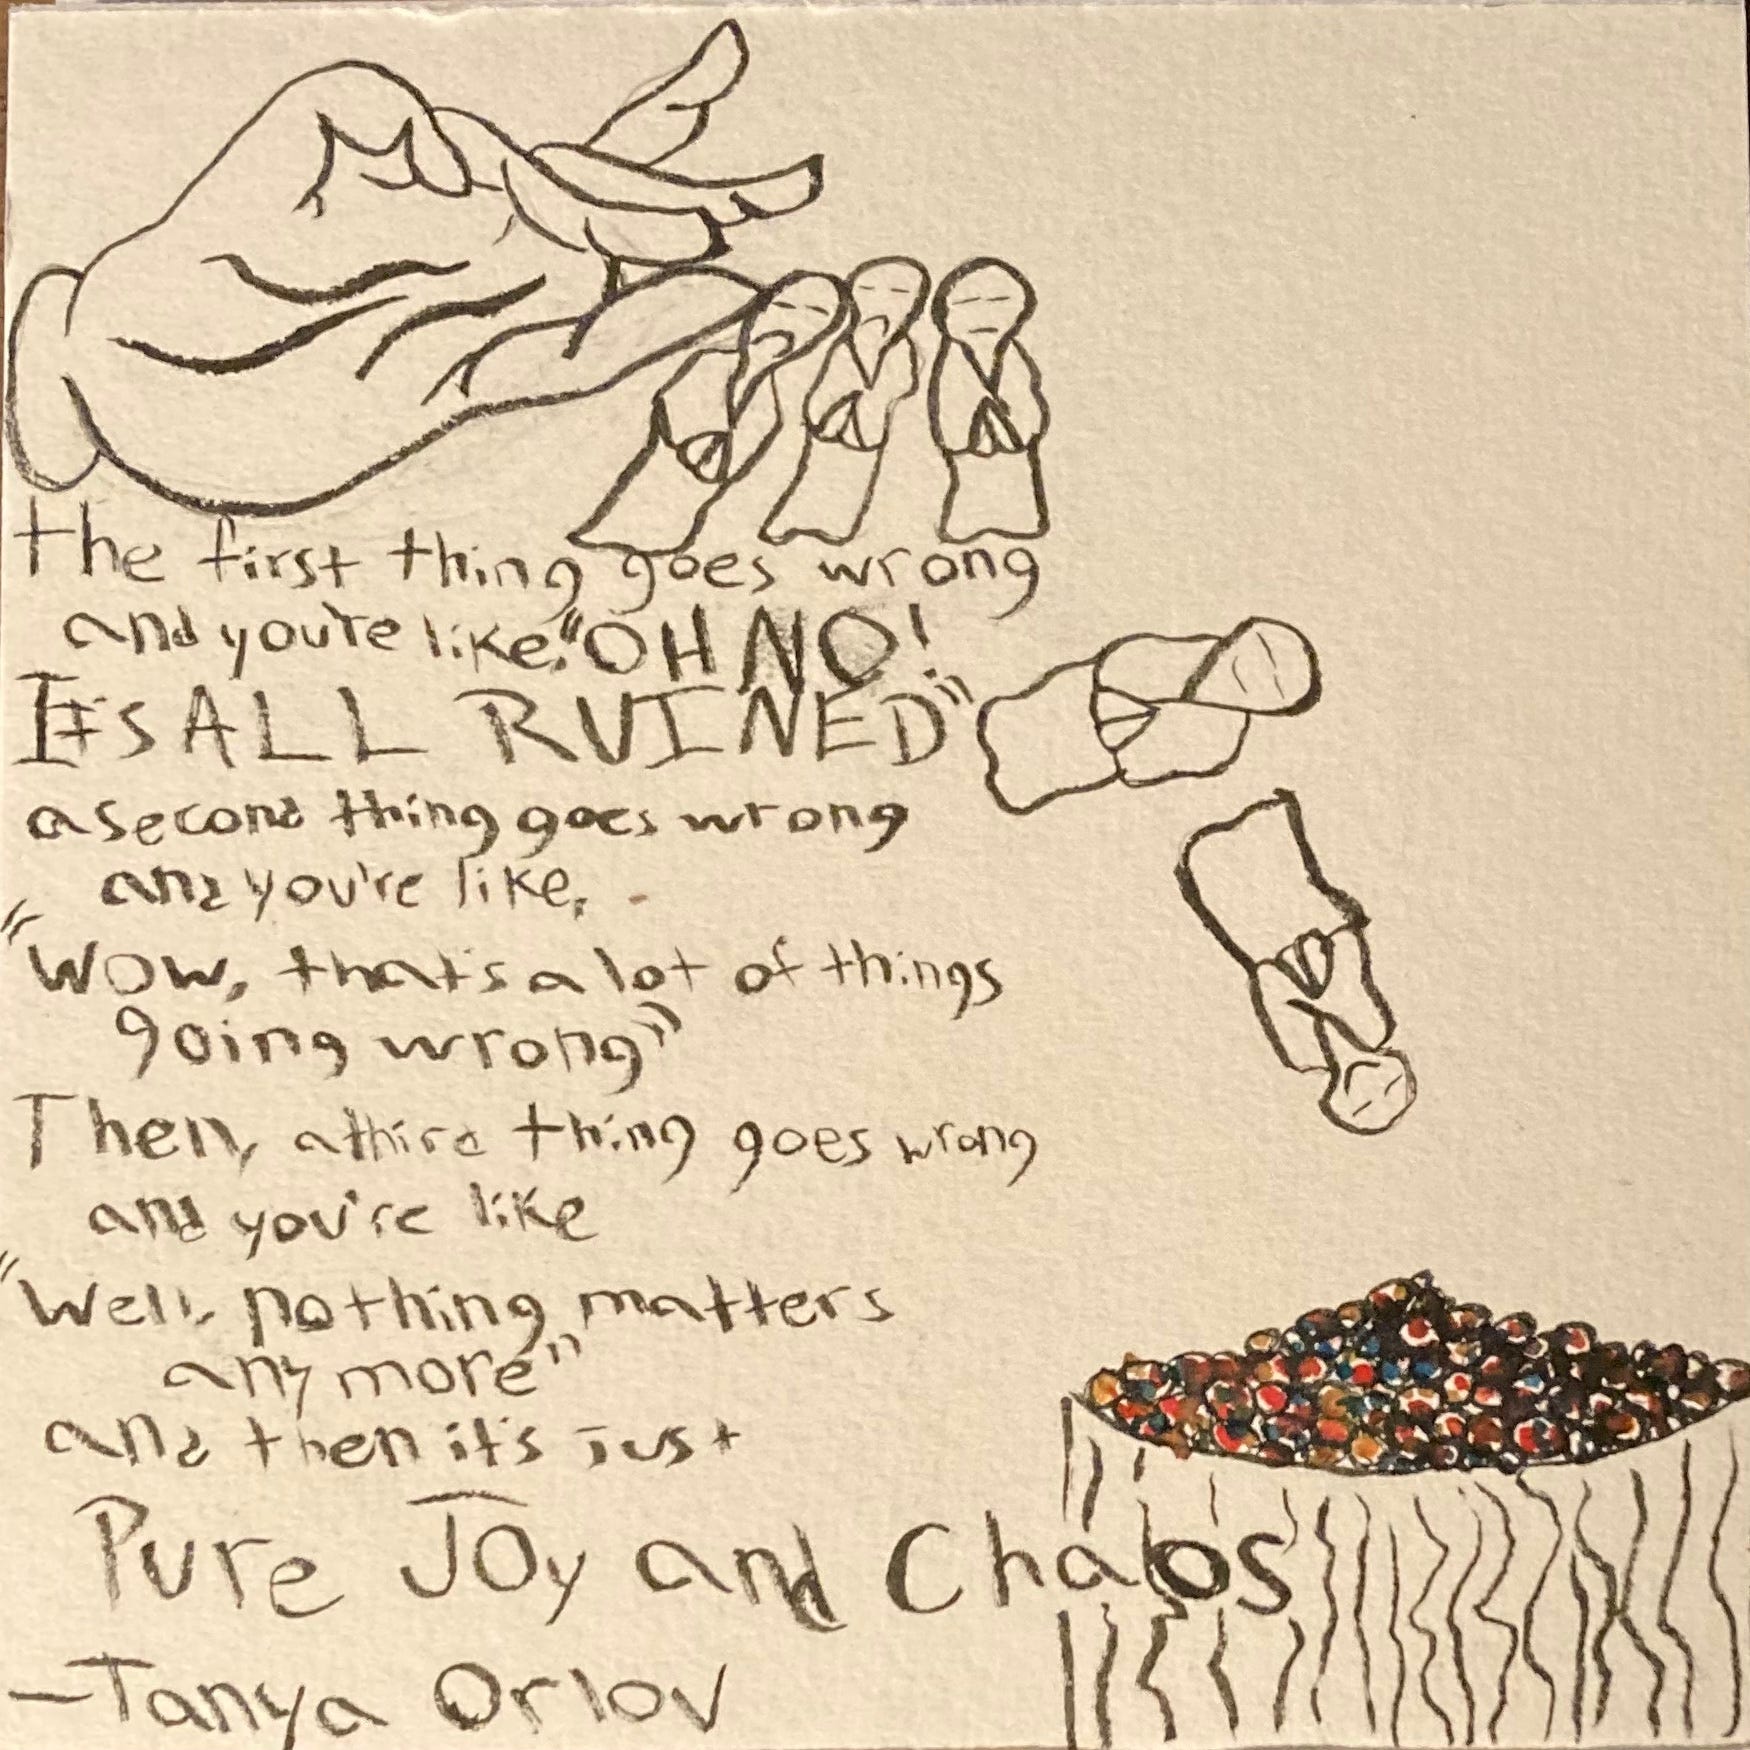 the first thing goes wrong
and you're like, "OH NO!
It's ALL RUINED"
a second thing goes wrong
and you're like,
"Wow, that's a lot of things
going wrong"
Then, a third thing goes wrong
and you're like
"Well, nothing matters
anymore"
and then it's just
Pure Joy and Chaos
-Tanya Orlov